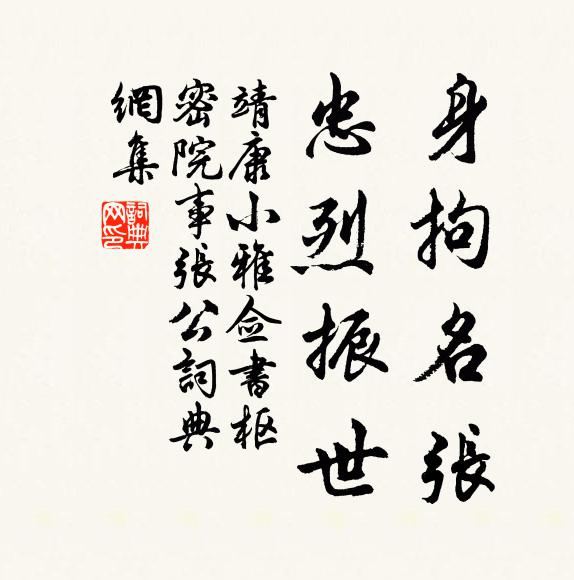 身拘名張
忠烈振世
靖康小雅佥書枢
密院事張公詞典
網集
詞典
网印